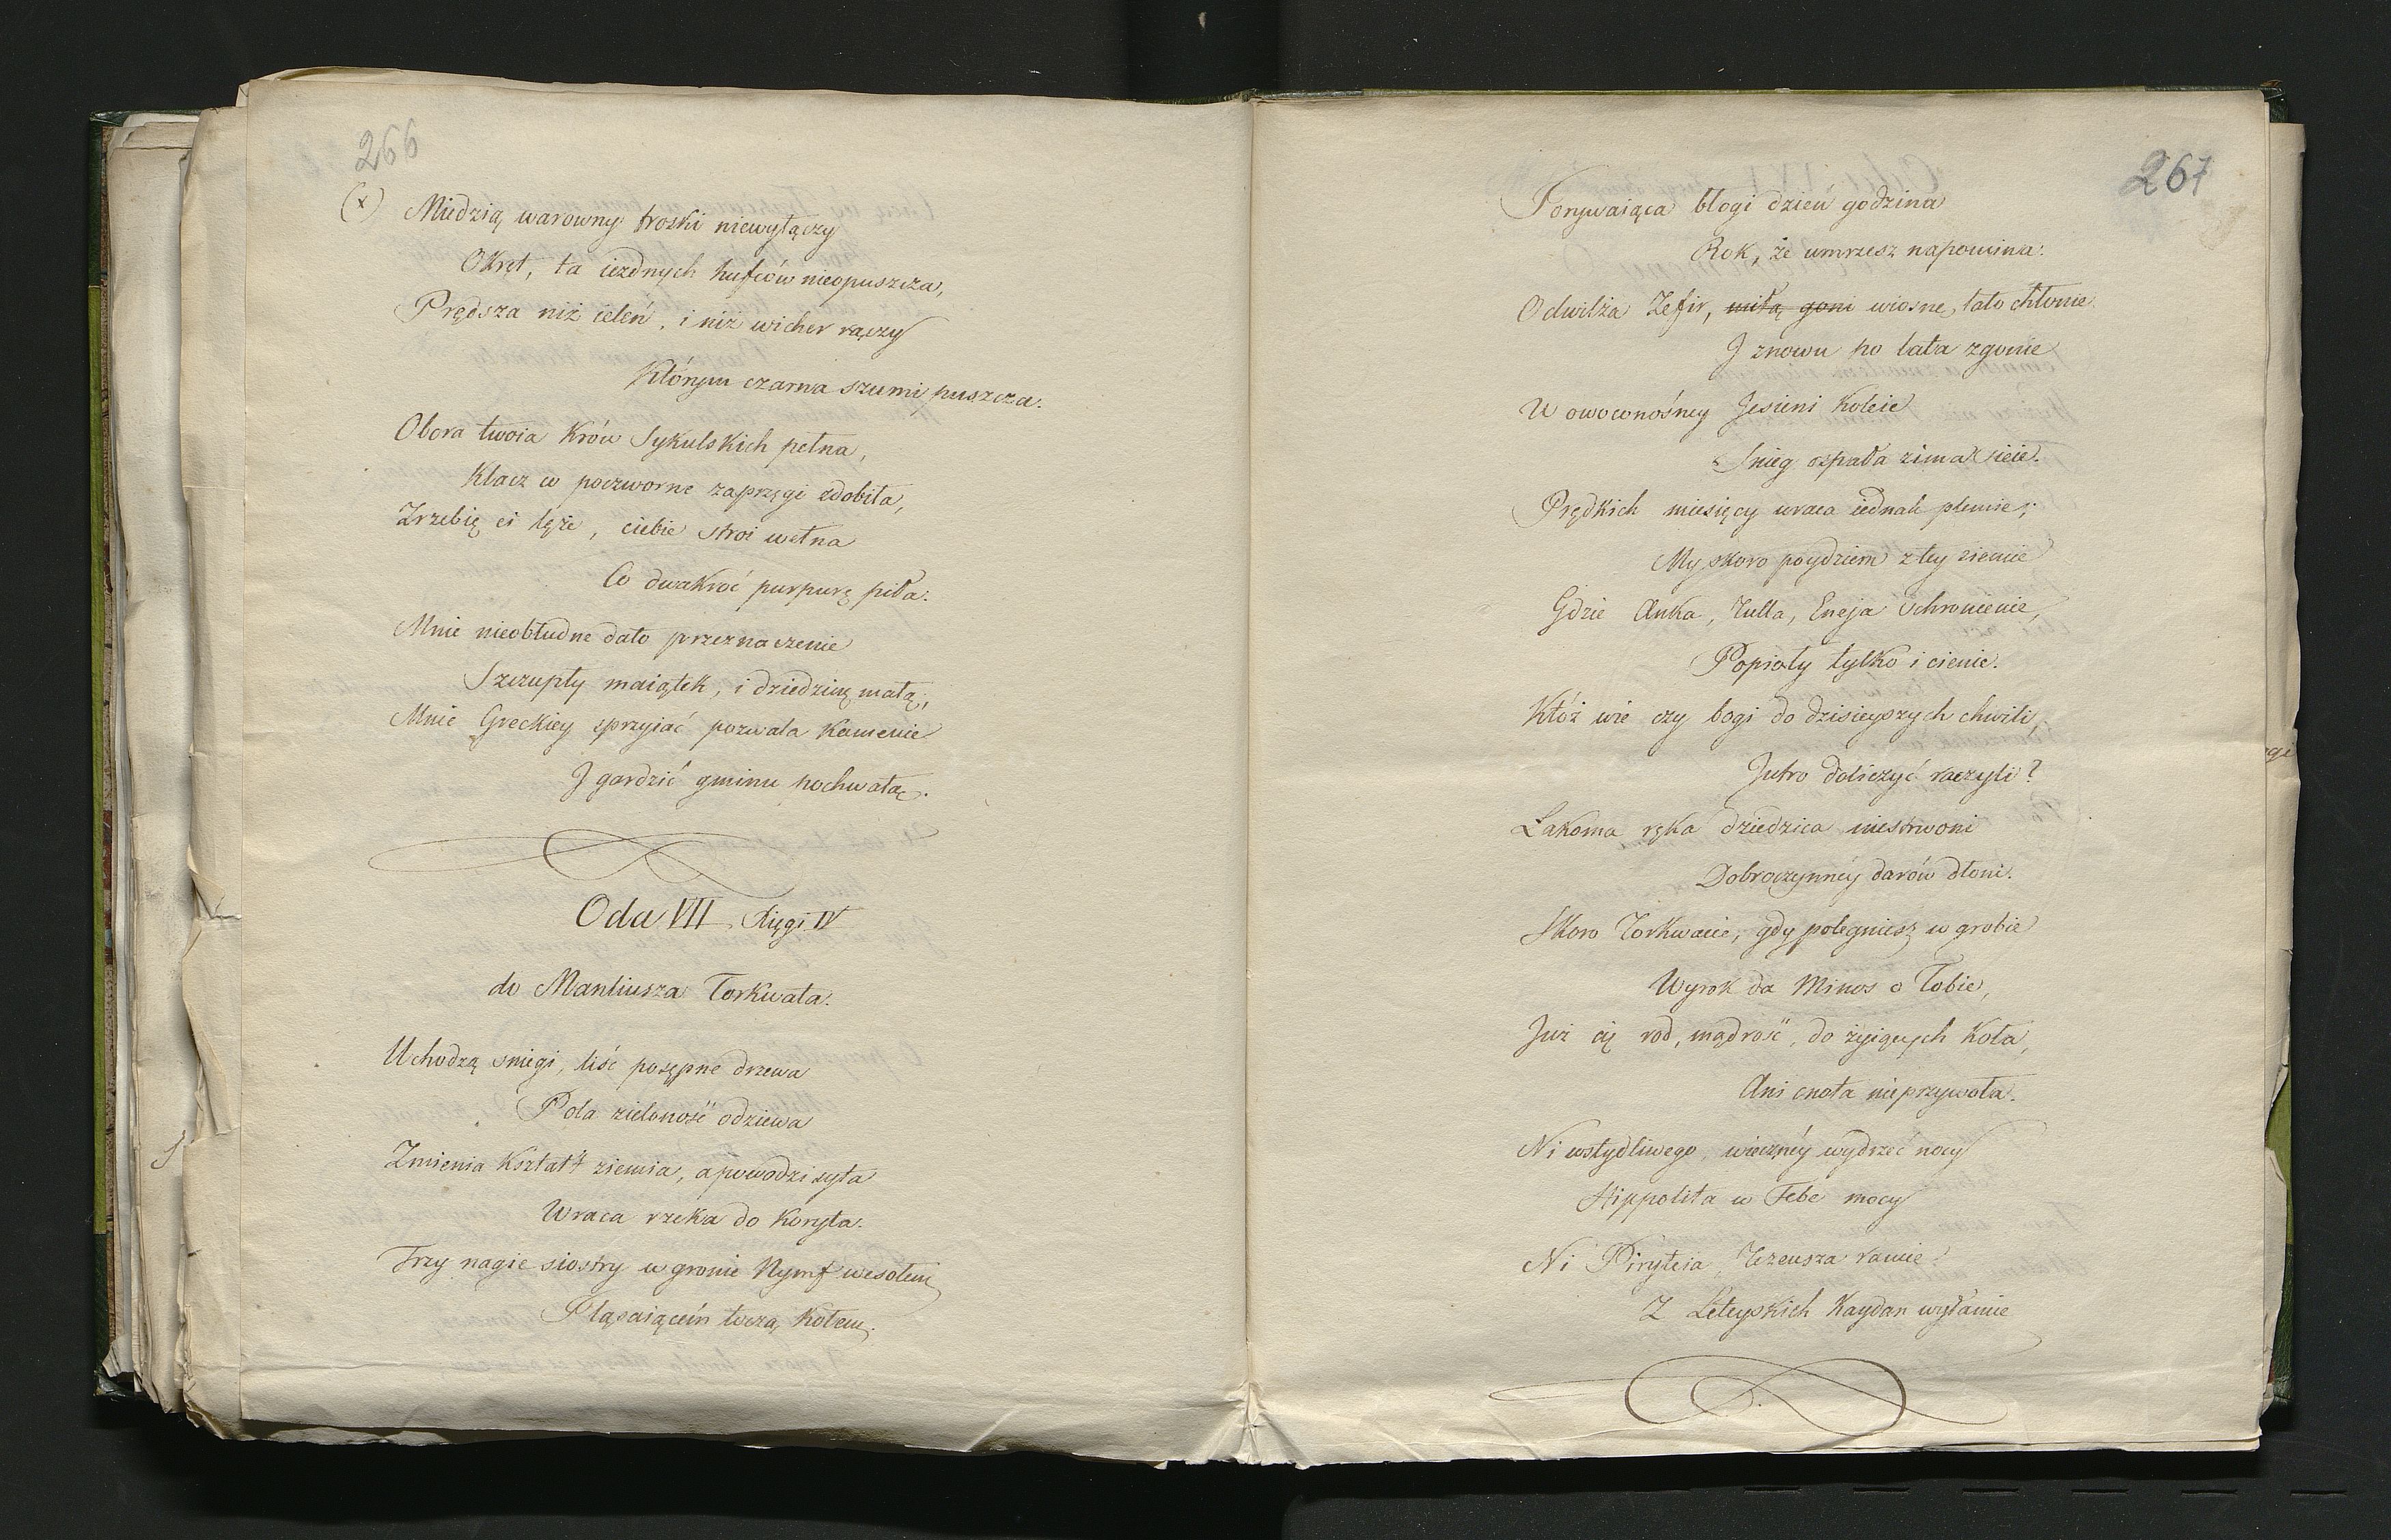 266
(x) Miedzią warowny troski niewyłączy
Okręt, ta iezdnych hufców nieopuszcza,
Prędsza niż ieleń, i niż wicher rączy
Którym czarna szumi puszcza.
Obora twoia Krów Sykulskich pełna,
Klacz co poczworne zaprzęgi zdobiła,
Zrzebię ci lęże, ciebie stroi wełna
Co dwakroć purpurę piła.
Mnie nieobłudne dało przeznaczenie
Szczupły maiątek, i dziedzinę małą;
Mnie Greckiey sprzyiać pozwala Kamenie
I gardzić gminu pochwałą.
Oda VII Xięgi IV
do Manliusza Torkwata.
Uchodzą sniegi, liść posępne drzewa
Pola zieloność odziewa
Zmienia Kształt ziemia, a powodzi syta
Wraca rzeka do Koryta.
Trzy nagie siostry w gronie Nymf wesołem
Pląsaiącém tocza, Kołem.
267
Porywaiąca błogi dzień godzina
Rok, że umrzesz napomina:
Odwilża Zefir, miłą goni wiosnę, lato chłonie
I znowu po lata zgonie
W owoconośney Jesieni Koleie
Snieg ospała zima sieie.
Prędkich miesięcy wraca iednak plemie;
My skoro poydziem z tey ziemie
Gdzie Anka, Tulla, Eneja Schronienie,
Popioły tylko i cienie.
Któż wie czy bogi do dzisieyszych chwili,
Jutro doliczyć raczyli?
Łakoma ręka dziedzica niestrwoni
Dobroczynnéy darów dłoni.
Skoro Torkwacie, gdy polegniesz w grobie
Wyrok da Minos o Tobie,
Już cię rod, mądrość, do żyiących Koła,
Ani cnota nieprzywoła.
Ni wstydliwego, wiecznéy wydrzeć nocy
Hippolita w Febe mocy
Ni Piryteia, Tezeusza ramie
Z Leteyskich Kaydan wyłamie